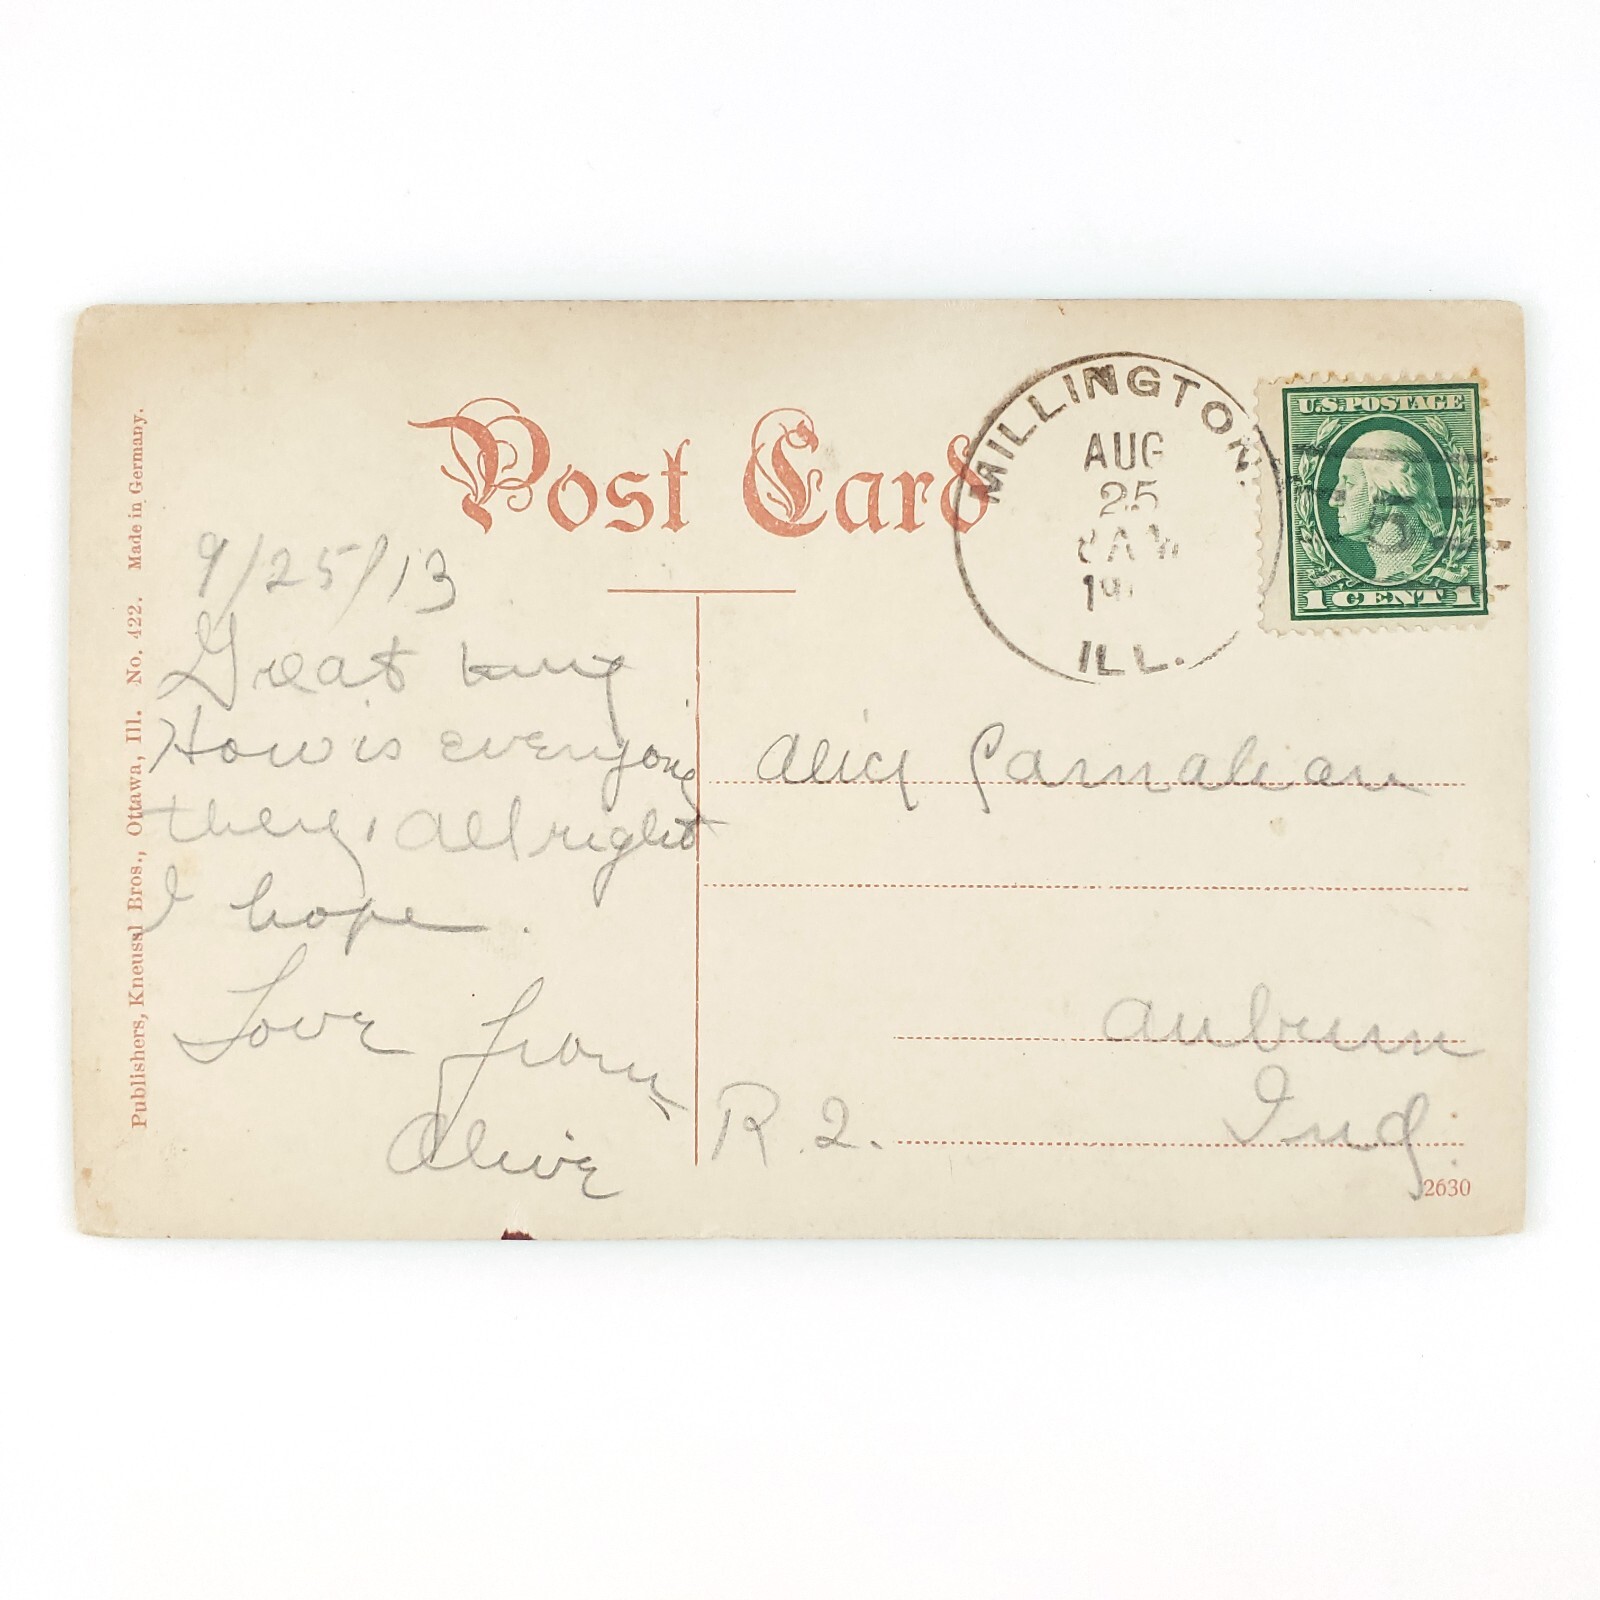 Post Card
MILLINGTON.
AUG
25
AM
19
ILL.
U.S. POSTAGE
1 CENT 1
5
Publishers, Kneussl Bros., Ottawa, Ill. No. 422. Made in Germany.
9/25/13
Great
How is everyone
there, all right
I hope.
Love from
Olive
Alice
Auburn
R. 2. Ind.
2630